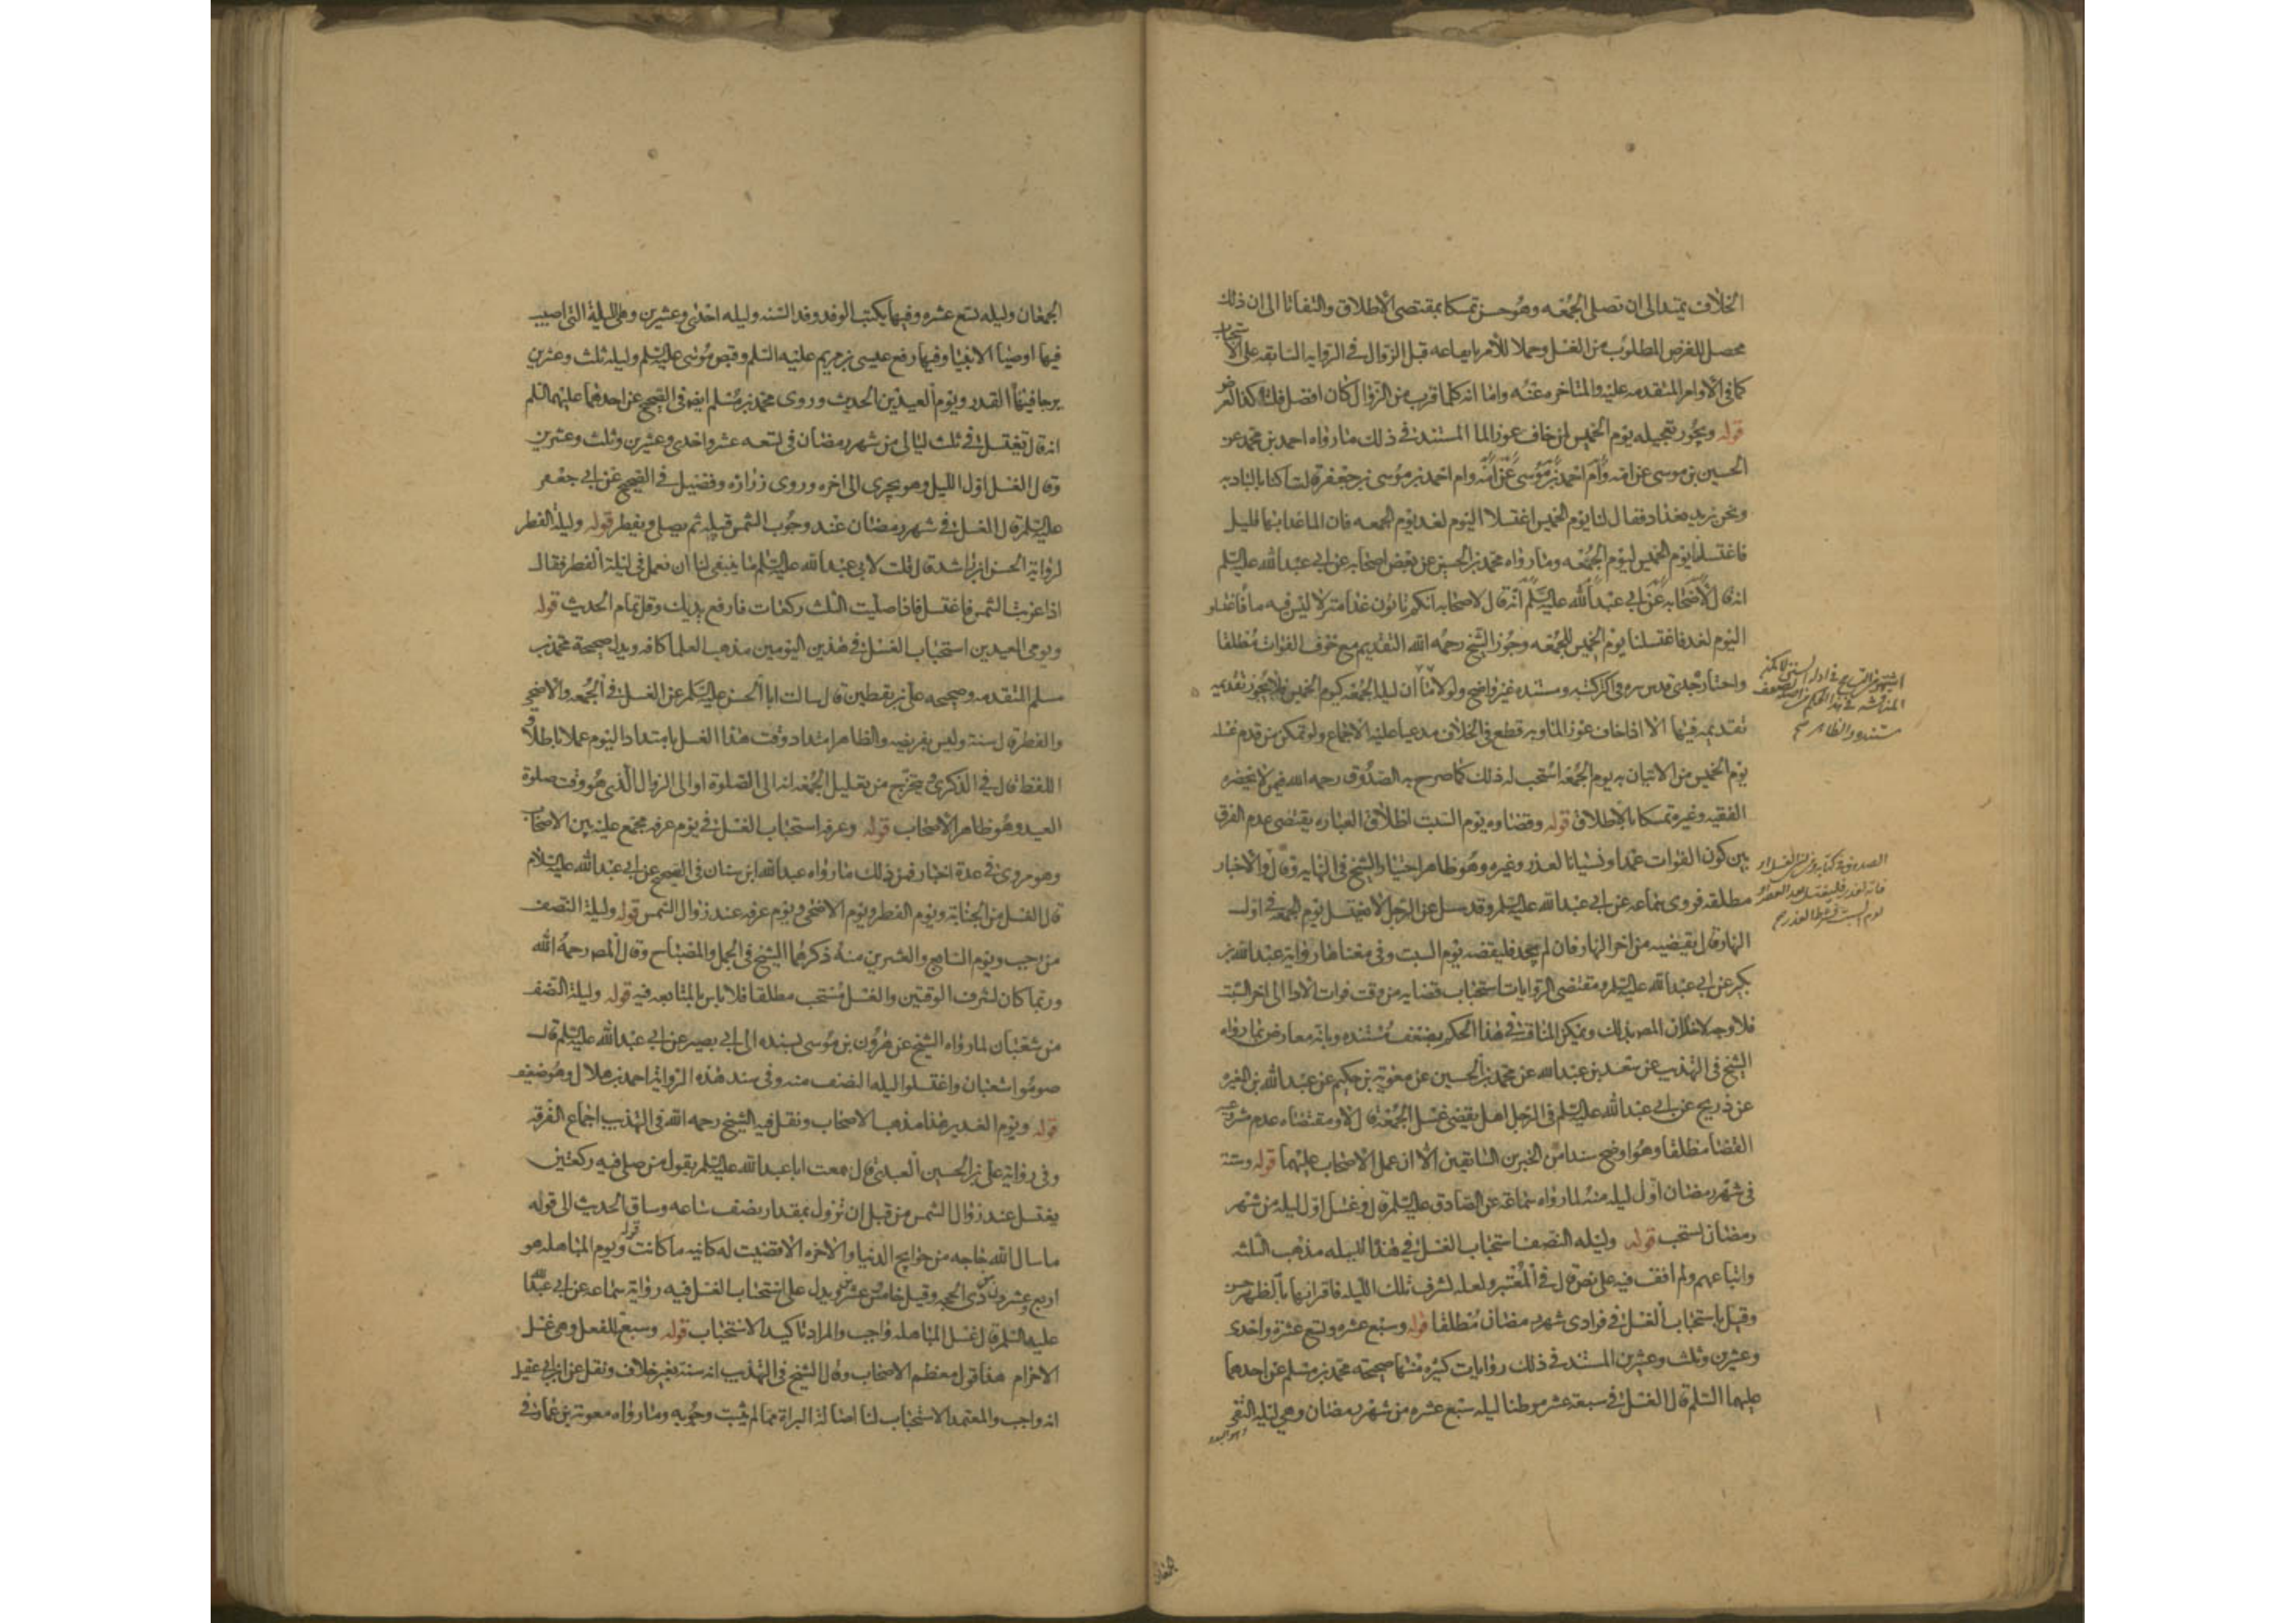 الخلاف يمتد الى ان تصلى الجمعه وهو حسن تمسكا بمقتضى الاطلاق والتفاتا الى ان ذلك
محصل للغرض المطلوب من الغسل وحملا للأمر بايقاعه قبل الزوال في الرواية السابقه على الاستحباب
كما في الاوامر المتقدمه عليه والمتاخره عنه واما انه كلما قرب من الزوال كان افضل
قوله ويجوز تعجيله يوم الخميس لمن خاف عوز الماء المستند في ذلك ما رواه احمد بن محمد عن
الحسين بن موسى عن امه وام احمد بن موسى عن امه وام احمد بن موسى بن جعفر قالت كنا بالباديه
ونحن نريد بغداد فقال لنا يوم الخميس اغتسلا اليوم لغد يوم الجمعه فان الماء غدا بها قليل
فاغتسلنا يوم الخميس ليوم الجمعه وما رواه محمد بن الحسين عن بعض اصحابه عن ابي عبد الله عليه السلم
انه قال لاصحابه عن ابي عبد الله عليه السلم انه قال لاصحابه انكم تاتون غدا منزلا ليس فيه ماء فاغتسلوا
اليوم لغد فاغتسلنا يوم الخميس للجمعه وجوز الشيخ رحمه الله التقديم مع خوف الفوات مطلقا
واختار جدى قدس سره في اكثر كتبه ومستنده غير واضح ولو لا ان ليلة الجمعه كيوم الخميس فلا يجوز تقديمه
تقديمه فيها الا اذا خاف عوز الماء وبه قطع في الخلاف مدعيا عليه الاجماع ولو تمكن من قدم غسله
يوم الخميس من الاتيان به يوم الجمعه استحب له ذلك كما صرح به الصدوق رحمه الله فى من لا يحضره
الفقيه وغيره تمسكا بالاطلاق قوله وقضاوه يوم السبت اطلاق العباره يقتضى عدم الفرق
بين كون الفوات عمدا ونسيانا لعذر وغيره وهو ظاهر اختيار الشيخ في النهايه وقال والاخبار
مطلقه فروى سماعه عن ابي عبد الله عليه السلم وقد سئل عن الرجل لا يغتسل يوم الجمعه في اول
النهار قال يقضيه من اخر النهار فان لم يجد فليقضه يوم السبت وفى معناها رواية عبد الله بن
بكير عن ابي عبد الله عليه السلم ومقتضى الروايات استحباب قضايه من وقت فوات الادا الى اخر السبت
فلا وجه لاخلال المص بذلك ويمكن المناقشه في هذا الحكم بضعف مستنده وبانه معارض بما رواه
الشيخ في التهذيب عن سعد بن عبد الله عن محمد بن الحسين عن معوية بن حكيم عن عبد الله بن المغيره
عن ذريح عن ابي عبد الله عليه السلم في الرجل هل يقضى غسل الجمعه قال لا ومقتضاه عدم مشروعيه
القضا مطلقا وهو اوضح سندا من الخبرين السابقين الا ان عمل الاصحاب عليهما قوله وستة
في شهر رمضان اول ليله منه لما رواه سماعه عن الصادق عليه السلم قال وغسل اول ليله من شهر
رمضان استحب قوله وليله النصف استحباب الغسل في هذا الليله مذهب الثلثه
واتباعهم ولم اقف فيه على نص قال في المعتبر ولعله لشرف تلك الليله فاقترانها بالطهر حسن
وقيل باستحباب الغسل في فرادى شهر رمضان مطلقا قوله وسبع عشره وتسع عشرة واحدى
وعشرين وثلث وعشرين المستند في ذلك روايات كثيره منها صحيحه محمد بن مسلم عن احدهما
عليهما السلم قال الغسل في سبعة عشر موطنا ليله سبع عشره من شهر رمضان وهي ليله التقى
الجمعان
الجمعان وليله تسع عشره وفيها يكتب الوفد وفد السنه وليله احدى وعشرين وهي الليلة التي اصيب
فيها اوصيا الانبيا وفيها رفع عيسى بن مريم عليه السلم وقبض موسى عليه السلم وليله ثلث وعشرين
يرجا فيها القدر ويوم العيدين الحديث وروى محمد بن مسلم ايضا في الصحيح عن احدهما عليهما السلم
انه قال تغتسل في ثلث ليالي من شهر رمضان في تسعه عشر واحدى وعشرين وثلث وعشرين
وقال الغسل اول الليل وهو يجزى الى اخره وروى زراره وفضيل في الصحيح عن ابي جعفر
عليه السلم قال الغسل في شهر رمضان عند وجوب الشمس قبيله ثم يصلى ويفطر قوله وليلة الفطر
لرواية الحسن ابن راشد قال قلت لابي عبد الله عليه السلم ما ينبغي لنا ان نعمل في ليلة الفطر فقال
اذا غربت الشمس فاغتسل فاذا صليت الثلث ركعات فارفع يديك وقل تمام الحديث قوله
ويومى العيدين استحباب الغسل في هذين اليومين مذهب العلما كافه ويدل صحيحة محمد بن
مسلم المتقدمه وصحيحه على بن يقطين قال سالت ابا الحسن عليه السلم عن الغسل في الجمعه والاضحى
والفطر قال سنة وليس بفريضه والظاهر امتداد وقت هذا الغسل بامتداد اليوم عملا باطلاق
اللفظ قال في الذكرى يتخرج من تعليل الجمعه انه الى الصلوة او الى الزوال الذى هو وقت صلوة
العيد وهو ظاهر الاصحاب قوله وعرفه استحباب الغسل في يوم عرفه مجمع عليه بين الاصحاب
وهو مروى في عدة اخبار فمن ذلك ما رواه عبد الله ابن سنان في الصحيح عن ابي عبد الله عليه السلام
قال الغسل من الجنابة ويوم الفطر ويوم الاضحى ويوم عرفه عند زوال الشمس قوله وليلة النصف
من رجب ويوم السابع والعشرين منه ذكرهما الشيخ في الجمل والمصباح وقال المص رحمه الله
وربما كان لشرف الوقتين والغسل مستحب مطلقا فلا باس بالمتابعه فيه قوله وليلة النصف
من شعبان لما رواه الشيخ عن هرون بن موسى بسنده الى ابي بصير عن ابي عبد الله عليه السلم قال
صوموا شعبان واغتسلوا ليله النصف منه وفي سند هذه الرواية احمد بن هلال وهو ضعيف
قوله ويوم الغدير هذا مذهب الاصحاب ونقل فيه الشيخ رحمه الله في التهذيب اجماع الفرقه
وفى رواية على بن الحسين العبدى قال سمعت ابا عبد الله عليه السلم يقول من صلى فيه ركعتين
يغتسل عند زوال الشمس من قبل ان تزول بمقدار نصف ساعه وساق الحديث الى قوله
ما سال الله حاجه من حوايج الدنيا والاخره الا قضيت له كاينه ما كانت قوله ويوم المباهله هو
اربع وعشرون من ذى الحجه وقيل خامس عشرين ويدل على استحباب الغسل فيه رواية سماعه عن ابي عبد الله
عليه السلم قال غسل المباهله واجب والمراد تاكيد الاستحباب قوله وسبع للفعل وهى غسل
الاحرام هذا قول معظم الاصحاب وقال الشيخ في التهذيب انه سنة بغير خلاف ونقل عن ابن ابي عقيل
انه واجب والمعتمد الاستحباب لنا اصالة البراة مما لم يثبت وجوبه وما رواه معوية بن عمار في